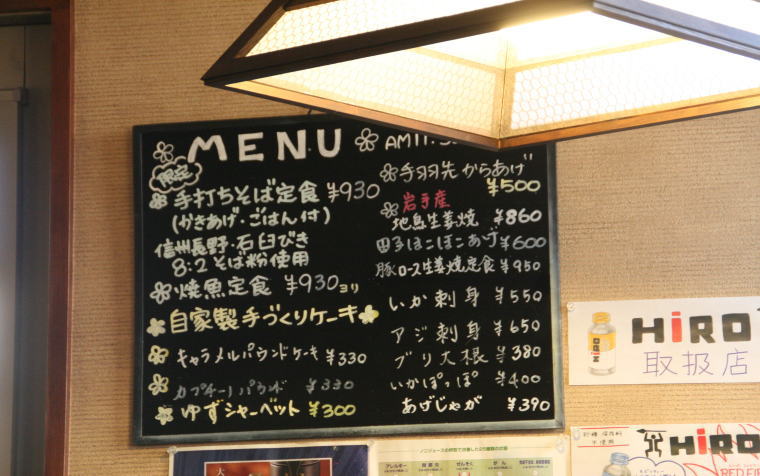 MENU
AM11:
限定
手打ちそば定食 ¥930
(かきあげ・ごはん付)
信州長野・石臼びき
8:2そば粉使用
焼魚定食 ¥930より
自家製手づくりケーキ
キャラメルパウンドケーキ ¥330
カプチーノパウンド ¥330
ゆずシャーベット ¥300
手羽先からあげ
¥500
岩手産
地鳥生姜焼 ¥860
¥600
豚ロース生姜焼定食 ¥950
いか刺身 ¥550
アジ刺身 ¥650
ブリ大根 ¥380
いかぽっぽ ¥400
あげじゃが ¥390
HiRO
取扱店
砂糖 保存料
不使用
HiRO
アレルギー
ぜんそく
がん